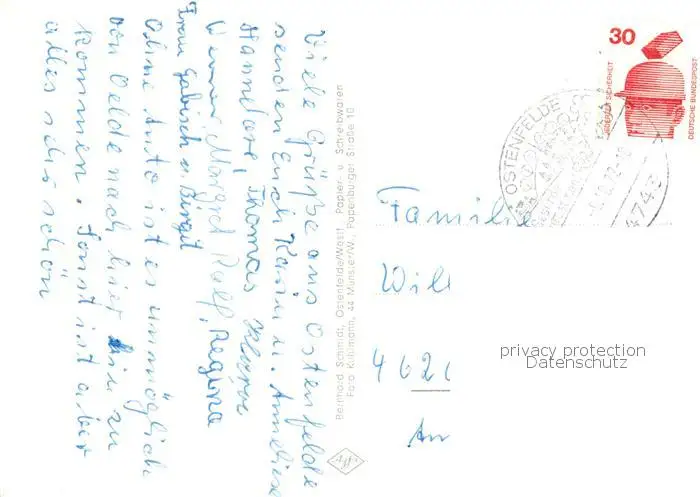 Viele Grüße aus Ostenfelde
senden Euch Karin u. Anneliese
Hannelore, Thomas
Werner Margid Ralf, Regina
Frau Gabisch u. Birgit
Ohne Auto ist es unmöglich
von Oelde nach hier hin zu
kommen. Sonst ist aber
alles sehr schön
Bernhard Schmidt, Ostenfelde/Westf., Papier- u. Schreibwaren
Foto Kuhlmann, 44 Münster/W., Papenburger Straße 10
30
DEUTSCHE BUNDESPOST
OSTENFELDE
4743
Familie
Will
462
An
privacy protection
Datenschutz